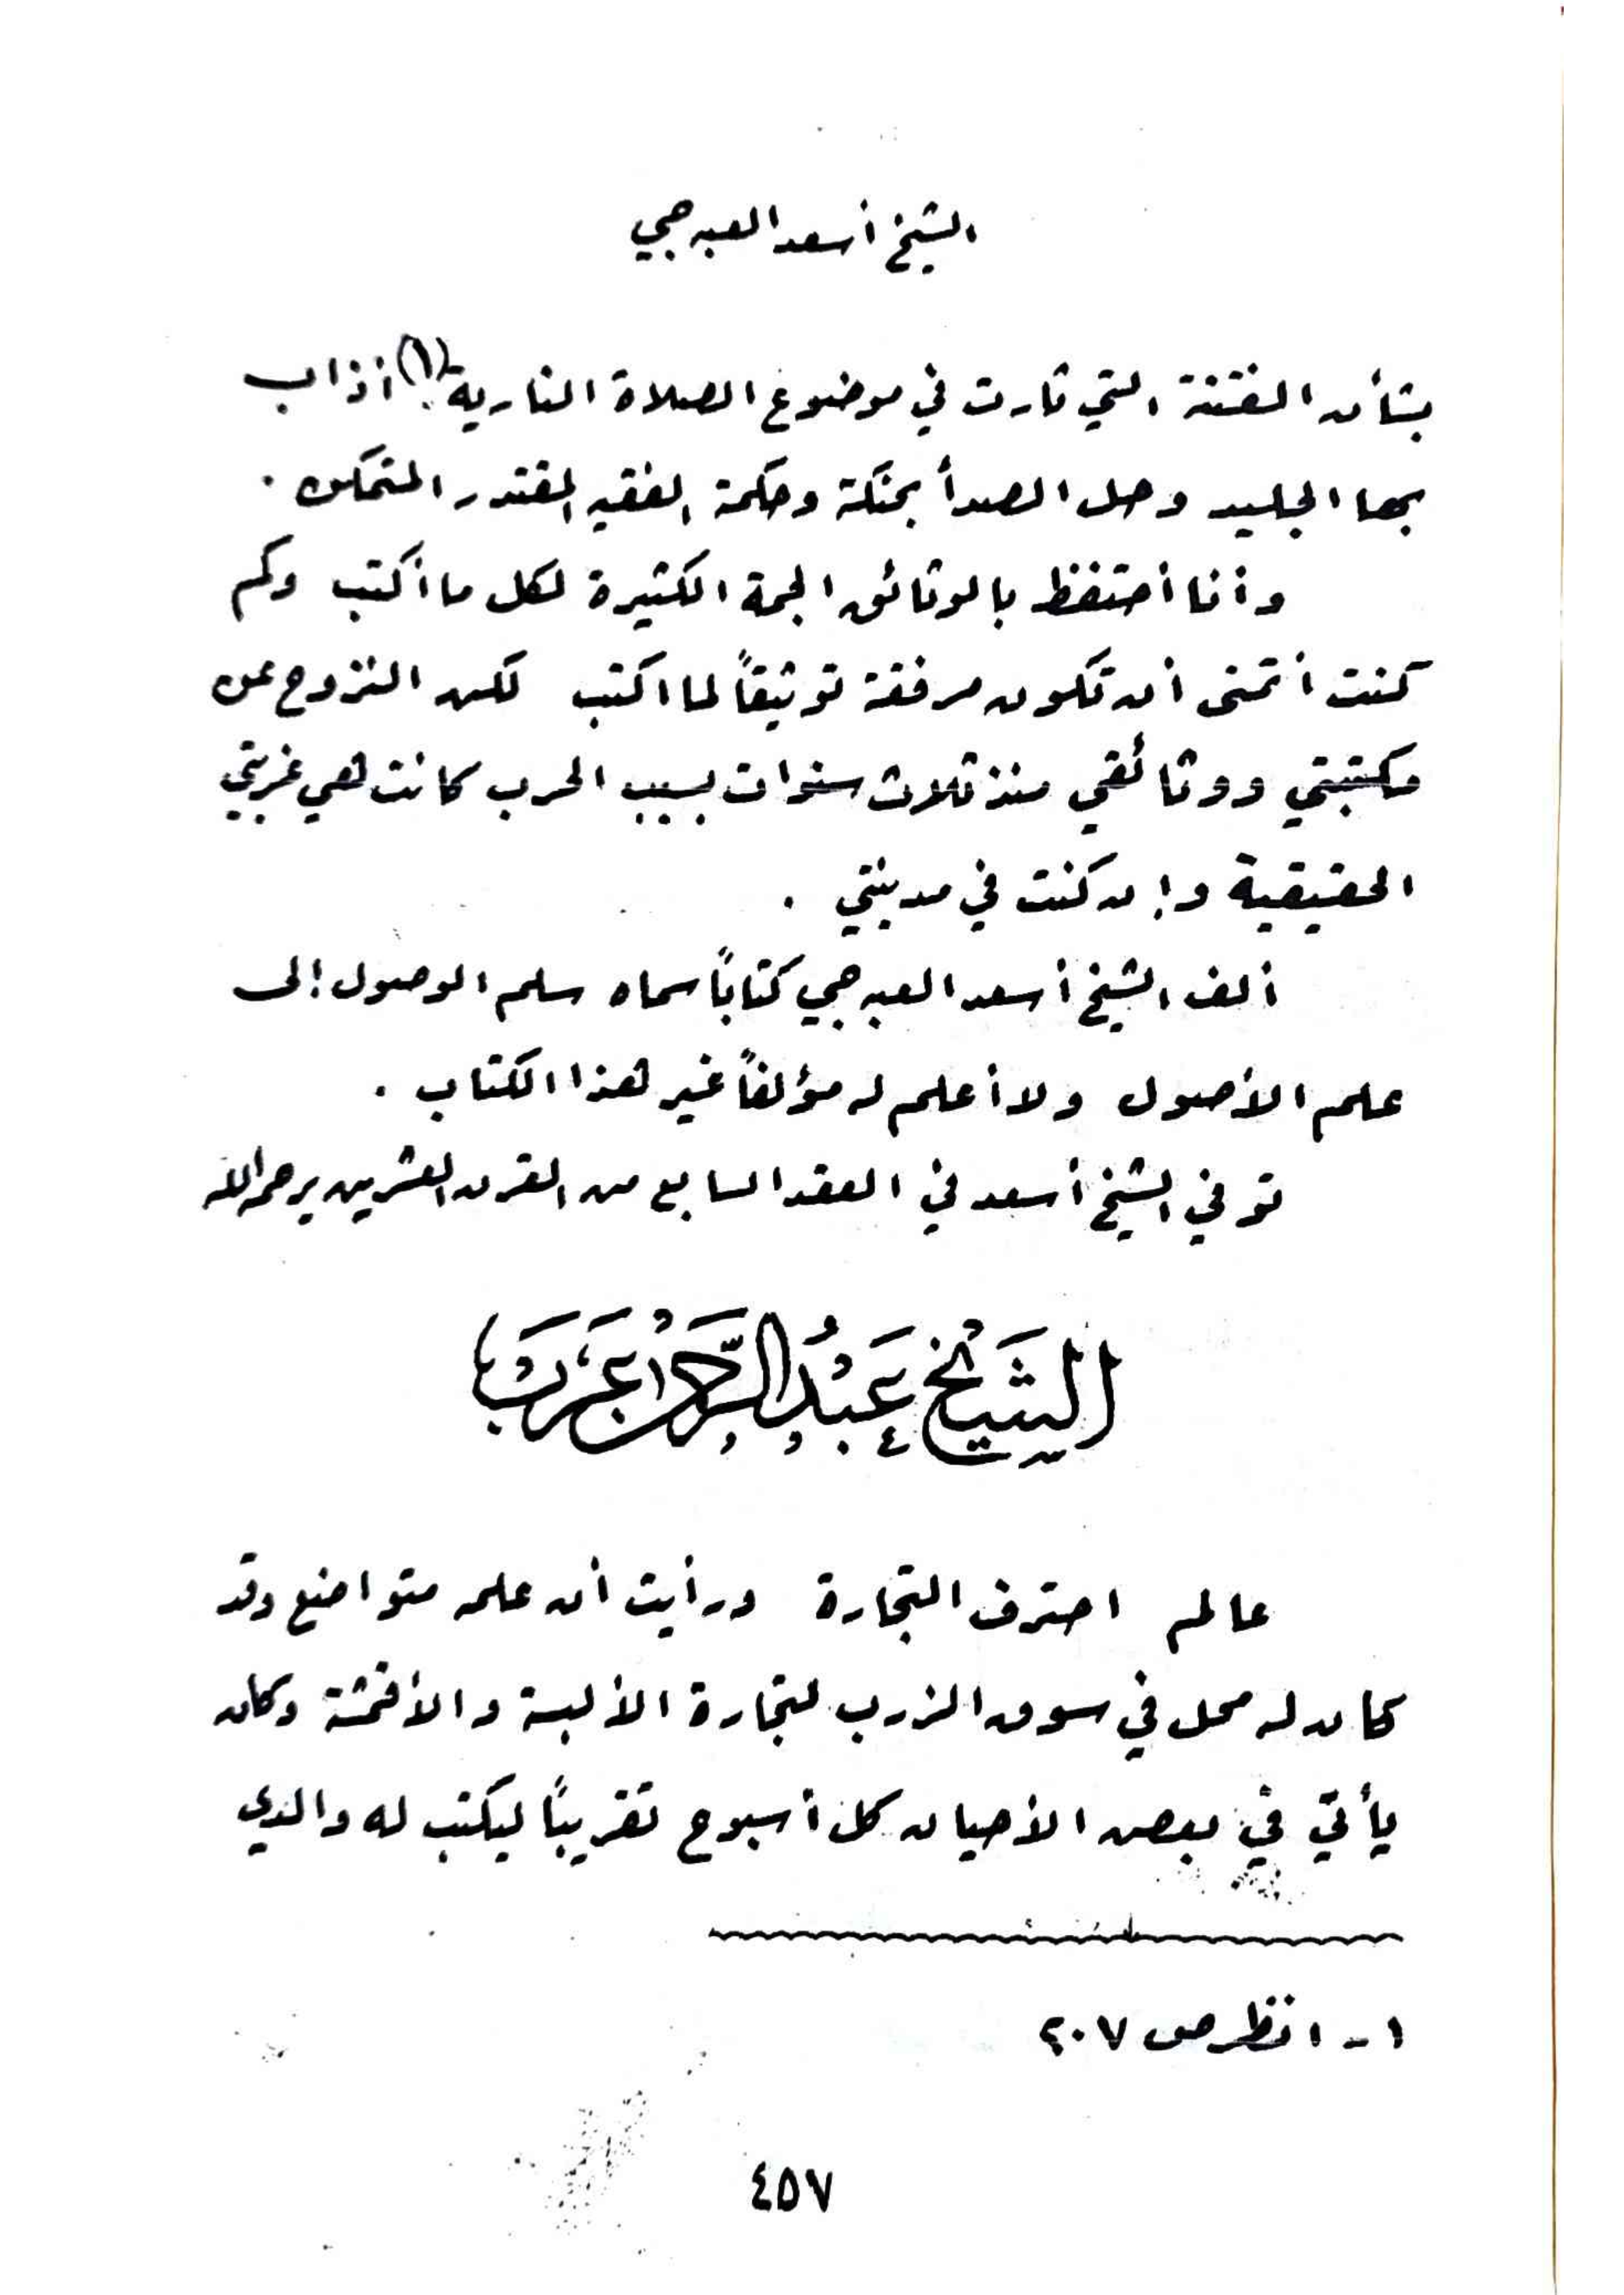 الشيخ أسعد العبه جي
بشأن الفتنة التي ثارت في موضوع الصلاة النارية (١) أذاب
بها الجليد وحل الصدأ بحنكة وحكمة الفقيه المقتدر المتمكن .
وأنا أحتفظ بالوثائق الجمة الكثيرة لكل ما أكتب وكم
كنت أتمنى أن تكون مرفقة توثيقاً لما اكتب لكن النزوح عن
مكتبتي ووثائقي منذ ثلاث سنوات بسبب الحرب كانت هي غربتي
الحقيقية وإن كنت في مدينتي .
ألف الشيخ أسعد العبه جي كتاباً سماه سلم الوصول إلى
علم الأصول ولا أعلم له مؤلفاً غير هذا الكتاب .
توفي الشيخ أسعد في العقد السابع من القرن العشرين يرحمه الله
الشَيْخ عَبْدُ الرَّحْمن عَرَب
عالم احترف التجارة ورأيت أن علمه متواضع وقد
كان له محل في سوق الزرب لتجارة الألبسة والأقمشة وكان
يأتي في بعض الأحيان كل أسبوع تقريباً ليكتب له والدي
١ - انظر ص ٢٠٧
٤٥٧